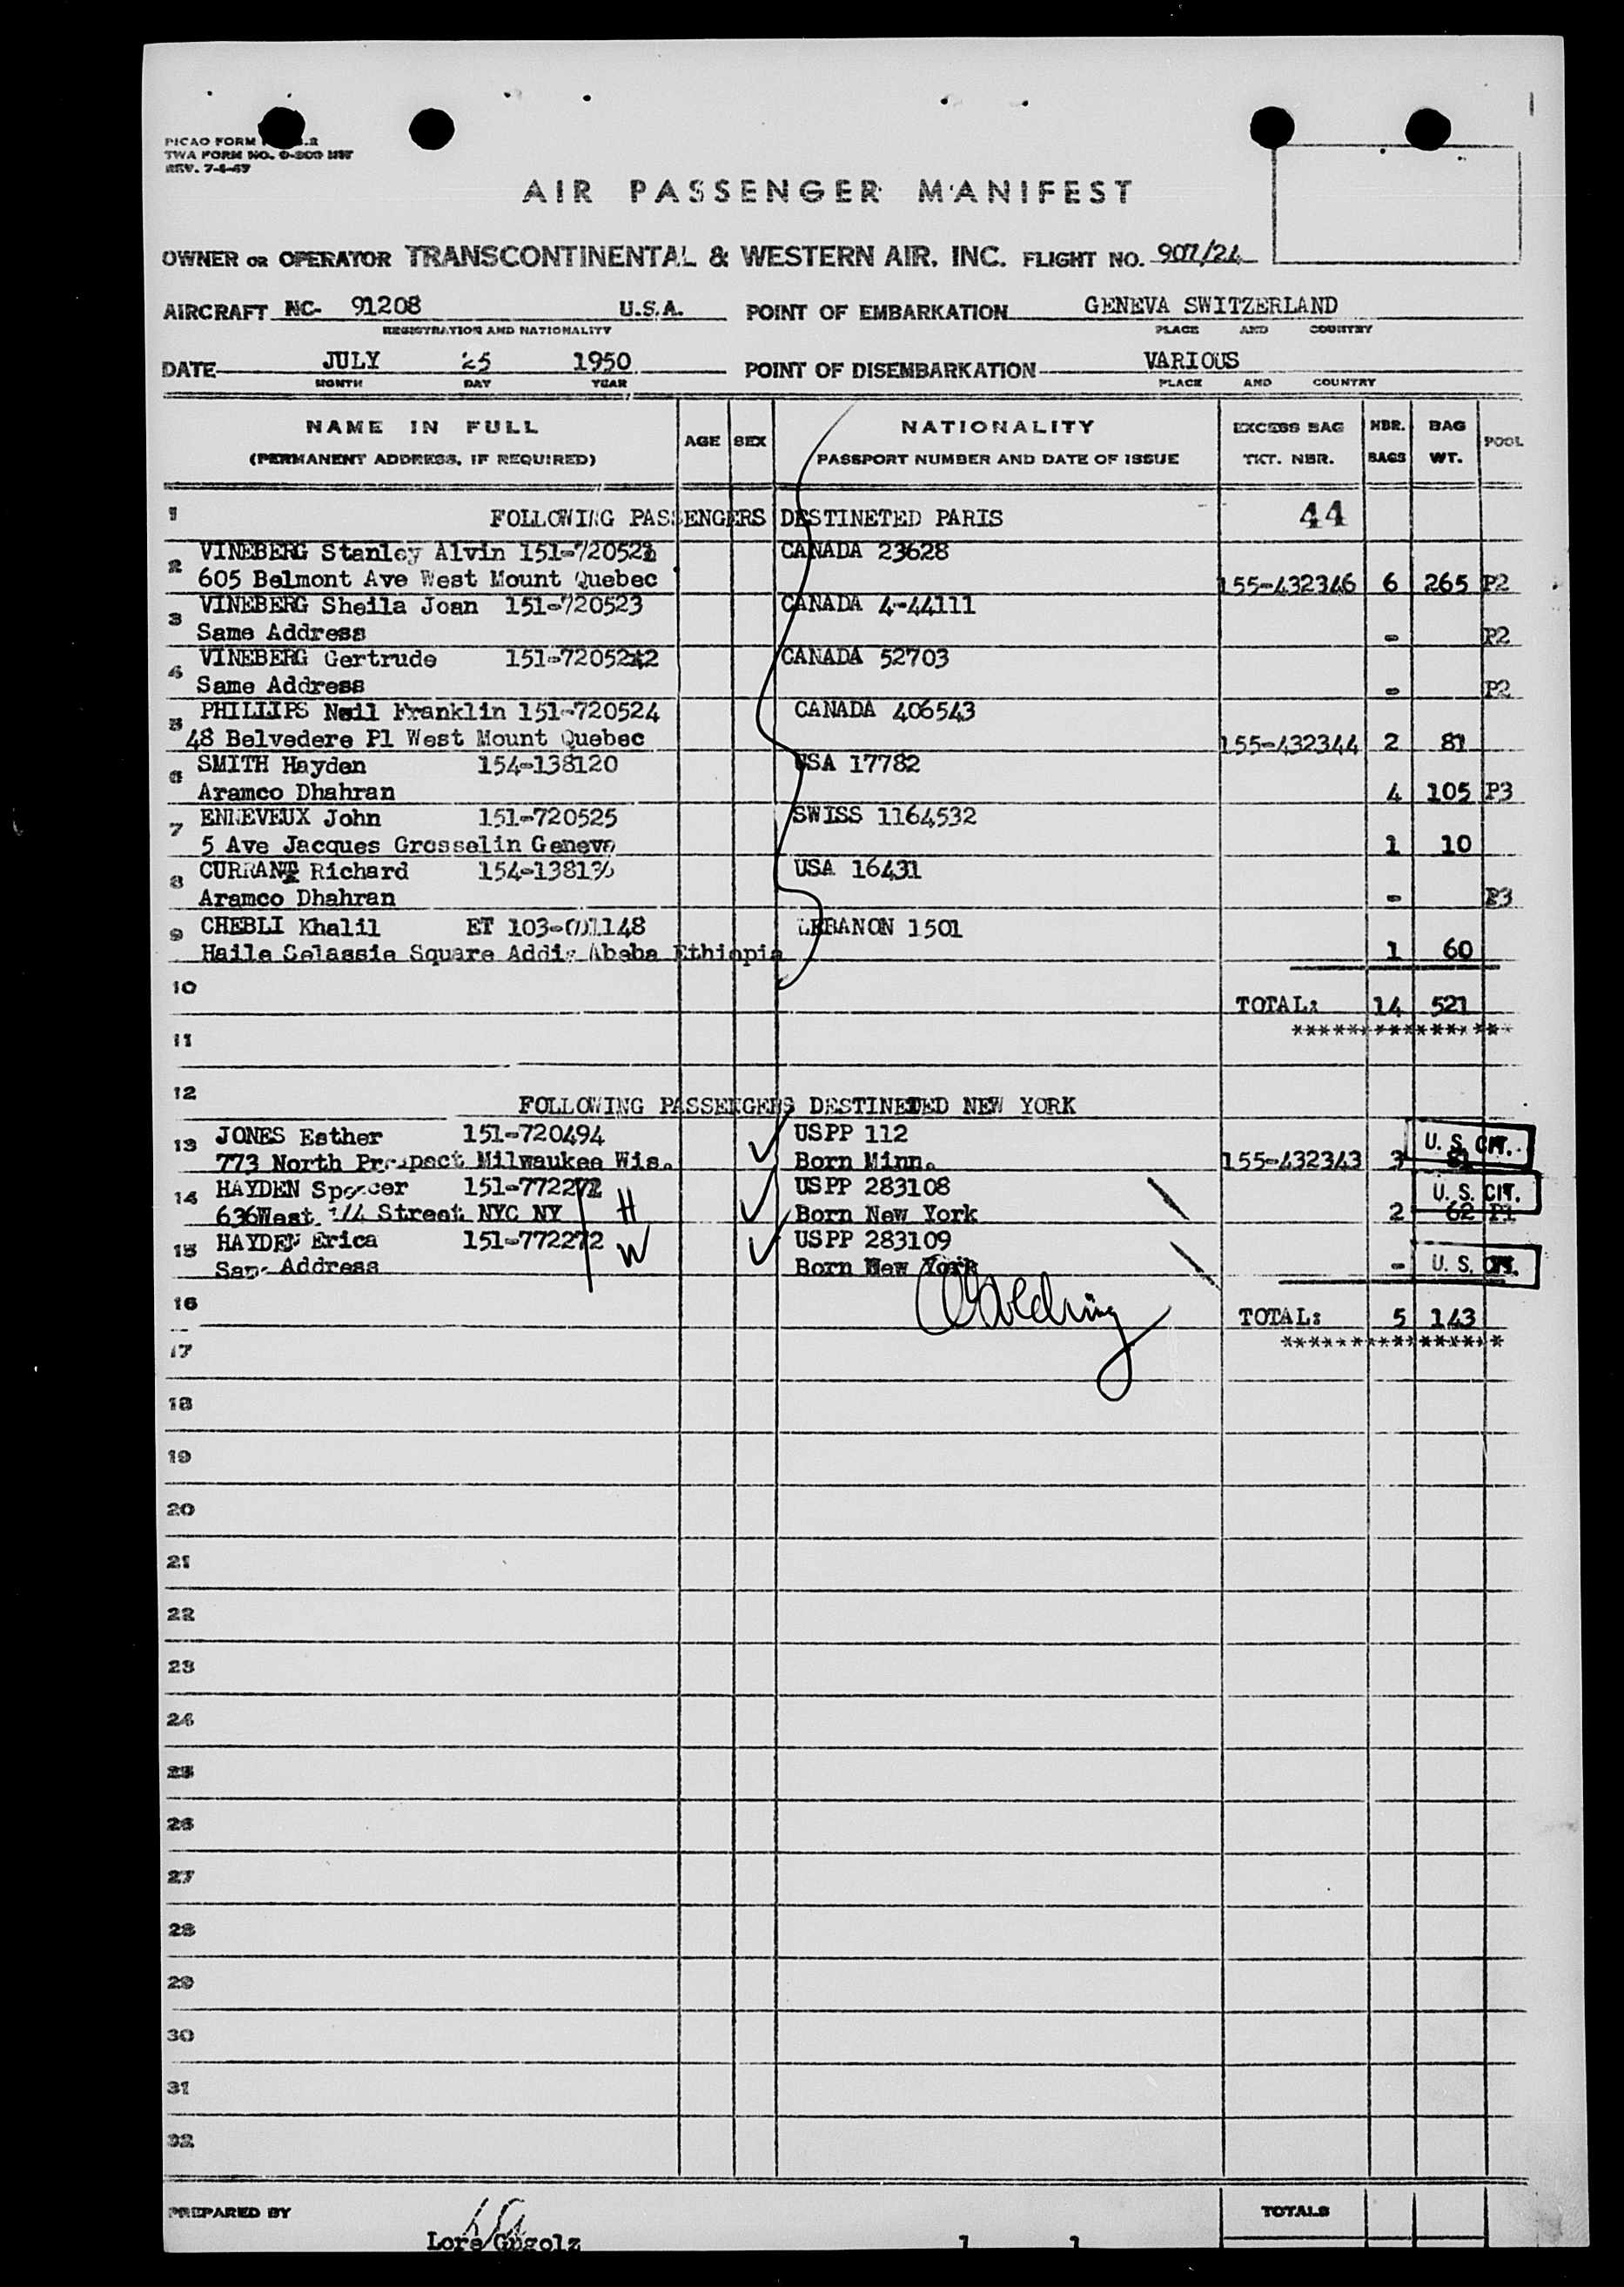 PICAO FORM
TWA FORM NO. 0-800 INT
REV. 7-1-47
AIR PASSENGER MANIFEST
OWNER OR OPERATOR TRANSCONTINENTAL & WESTERN AIR, INC. FLIGHT NO. 907/24
AIRCRAFT NC- 91208 U.S.A. POINT OF EMBARKATION GENEVA SWITZERLAND
REGISTRATION AND NATIONALITY PLACE AND COUNTRY
DATE JULY 25 1950 POINT OF DISEMBARKATION VARIOUS
MONTH DAY YEAR PLACE AND COUNTRY
NAME IN FULL AGE SEX NATIONALITY EXCESS BAG NBR. BAG POOL
(PERMANENT ADDRESS, IF REQUIRED) PASSPORT NUMBER AND DATE OF ISSUE TKT. NBR. BAGS WT.
1 FOLLOWING PASSENGERS DESTINETED PARIS 44
2 VINEBERG Stanley Alvin CANADA 23628
605 Belmont Ave West Mount Quebec 155-432346 6 265 P2
3 VINEBERG Sheila Joan 151-720523 CANADA 4-44111
Same Address - P2
4 VINEBERG Gertrude CANADA 52703
Same Address - P2
5 PHILLIPS Neil Franklin 151-720524 CANADA 406543
48 Belvedere Pl West Mount Quebec 155-432344 2 81
6 SMITH Hayden 154-138120 USA 17782
Aramco Dhahran 4 105 P3
7 ENNEVEUX John 151-720525 SWISS 1164532
5 Ave Jacques Grosselin Geneva 1 10
8 Richard USA 16431
Aramco Dhahran - P3
9 CHEBLI Khalil ET LEBANON 1501
Haile Selassie Square Addis Abeba Ethiopia 1 60
10 TOTAL: 14 521
*******************
11
12 FOLLOWING PASSENGERS DESTINETED NEW YORK
13 JONES Esther 151-720494 USPP 112 U. S. CIT.
773 North Prospect Milwaukee Wis. Born Minn. 155-432343 3 81
14 HAYDEN Spencer USPP 283108 U. S. CIT.
636West Street NYC NY H Born New York 2 62 P1
15 HAYDEN Erica 151-772272 W USPP 283109
Same Address Born New York - U. S. CIT.
16 TOTAL: 5 143
*******************
17
18
19
20
21
22
23
24
25
26
27
28
29
30
31
32
PREPARED BY TOTALS
Lore